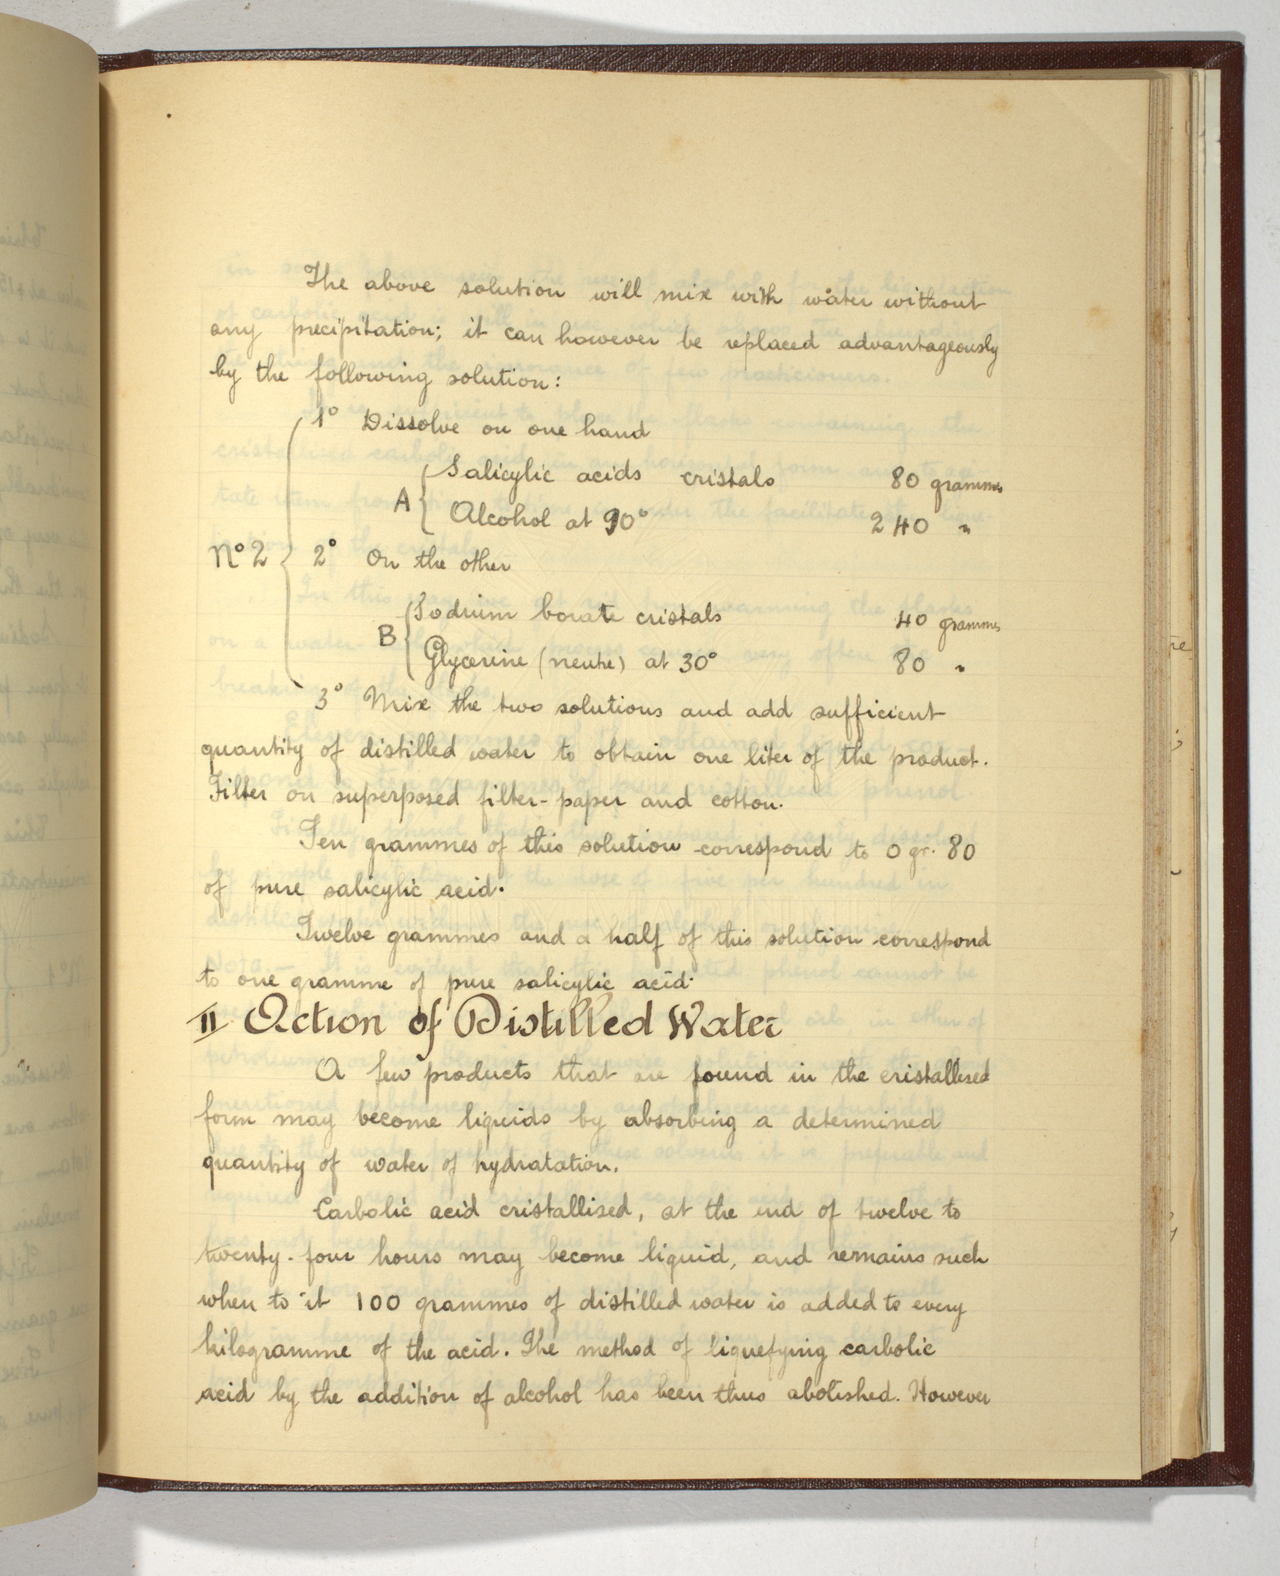 The above solution will mix with water without
any precipitation; it can however be replaced advantageously
by the following solution:
1° Dissolve on one hand
A { Salicylic acids cristals 80 grammes
Alcohol at 90° 240 "
N° 2 { 2° On the other
B { Sodium borate cristals 40 grammes
Glycerine (neutre) at 30° 80 "
3° Mix the two solutions and add sufficient
quantity of distilled water to obtain one liter of the product.
Filter on superposed filter-paper and cotton.
Ten grammes of this solution correspond to 0 gr. 80
of pure salicylic acid.
Twelve grammes and a half of this solution correspond
to one gramme of pure salicylic acid.
II Action of Distilled Water
A few products that are found in the cristallised
form may become liquids by absorbing a determined
quantity of water of hydratation.
Carbolic acid cristallised, at the end of twelve to
twenty-four hours may become liquid, and remains such
when to it 100 grammes of distilled water is added to every
kilogramme of the acid. The method of liquefying carbolic
acid by the addition of alcohol has been thus abolished. However